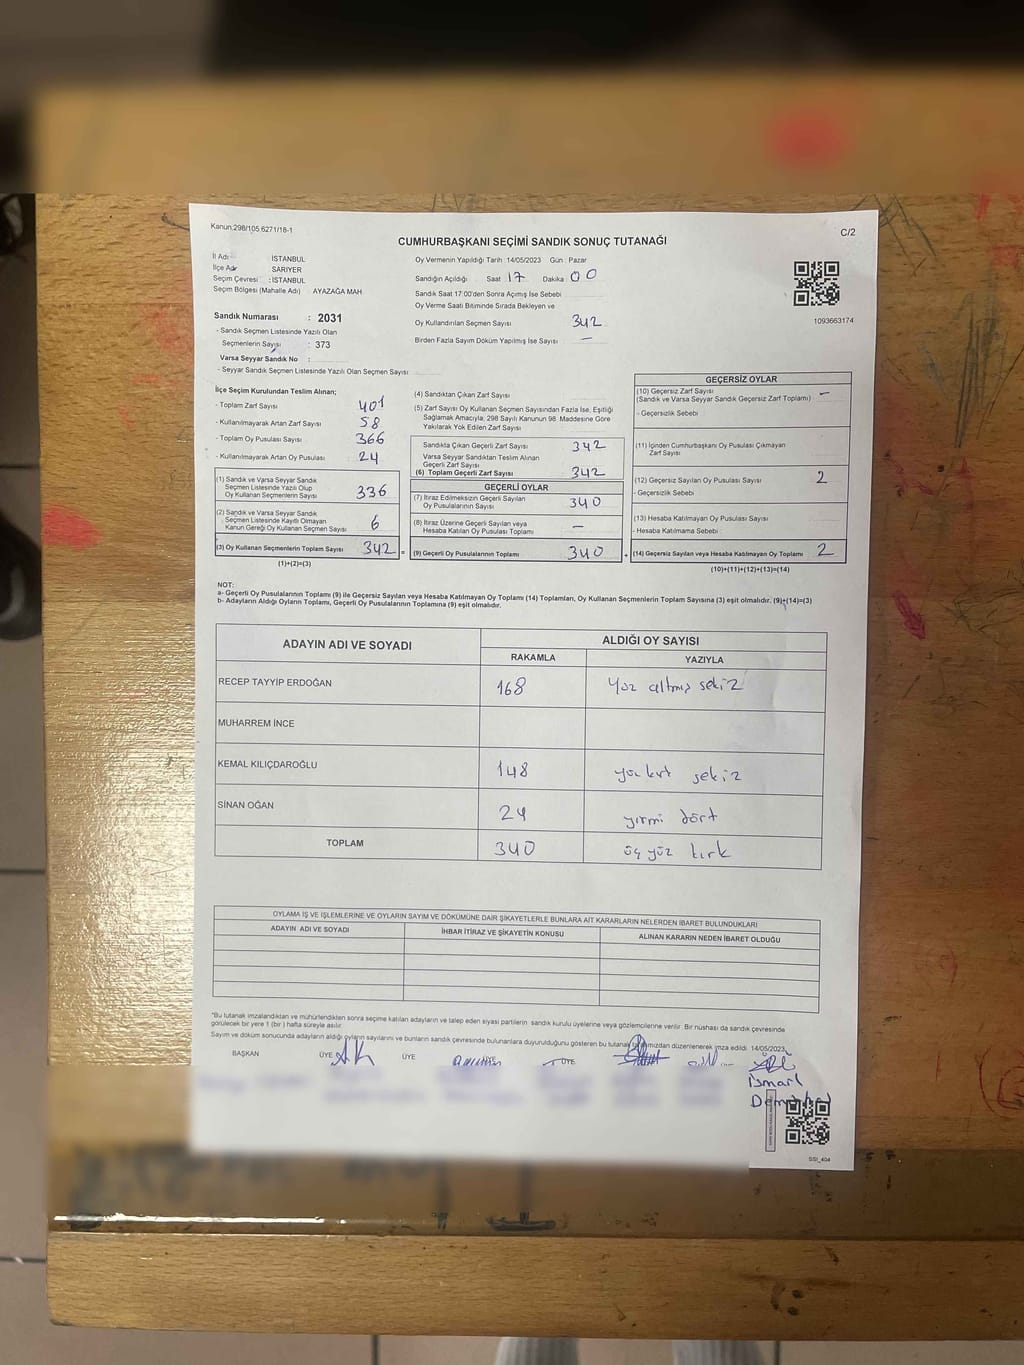 Kanun:298/105 6271/18-1
C/2
CUMHURBAŞKANI SEÇİMİ SANDIK SONUÇ TUTANAĞI
İl Adı : İSTANBUL
İlçe Adı : SARIYER
Seçim Çevresi : İSTANBUL
Seçim Bölgesi (Mahalle Adı) AYAZAĞA MAH
Sandık Numarası : 2031
- Sandık Seçmen Listesinde Yazılı Olan
Seçmenlerin Sayısı : 373
Varsa Seyyar Sandık No :
- Seyyar Sandık Seçmen Listesinde Yazılı Olan Seçmen Sayısı
Oy Vermenin Yapıldığı Tarih :14/05/2023 Gün : Pazar
Sandığın Açıldığı Saat 17 Dakika : 00
Sandık Saat 17:00'den Sonra Açımış İse Sebebi
Oy Verme Saati Bitiminde Sırada Bekleyen ve
Oy Kullandırılan Seçmen Sayısı 342
Birden Fazla Sayım Döküm Yapılmış İse Sayısı —
1093663174
İlçe Seçim Kurulundan Teslim Alınan;
- Toplam Zarf Sayısı 401
- Kullanılmayarak Artan Zarf Sayısı 58
- Toplam Oy Pusulası Sayısı 366
- Kullanılmayarak Artan Oy Pusulası 24
(1) Sandık ve Varsa Seyyar Sandık
Seçmen Listesinde Yazılı Olup
Oy Kullanan Seçmenlerin Sayısı 336
(2) Sandık ve Varsa Seyyar Sandık
Seçmen Listesinde Kayıtlı Olmayan
Kanun Gereği Oy Kullanan Seçmen Sayısı 6
(3) Oy Kullanan Seçmenlerin Toplam Sayısı 342 =
(1)+(2)=(3)
(4) Sandıktan Çıkan Zarf Sayısı
(5) Zarf Sayısı Oy Kullanan Seçmen Sayısından Fazla İse, Eşitliği
Sağlamak Amacıyla; 298 Sayılı Kanunun 98. Maddesine Göre
Yakılarak Yok Edilen Zarf Sayısı
Sandıkta Çıkan Geçerli Zarf Sayısı 342
Varsa Seyyar Sandıktan Teslim Alınan
Geçerli Zarf Sayısı
(6) Toplam Geçerli Zarf Sayısı 342
GEÇERLİ OYLAR
(7) İtiraz Edilmeksizin Geçerli Sayılan
Oy Pusulalarının Sayısı 340
(8) İtiraz Üzerine Geçerli Sayılan veya
Hesaba Katılan Oy Pusulası Toplamı —
(9) Geçerli Oy Pusulalarının Toplamı 340 +
GEÇERSİZ OYLAR
(10) Geçersiz Zarf Sayısı —
(Sandık ve Varsa Seyyar Sandık Geçersiz Zarf Toplamı)
- Geçersizlik Sebebi
(11) İçinden Cumhurbaşkanı Oy Pusulası Çıkmayan
Zarf Sayısı
(12) Geçersiz Sayılan Oy Pusulası Sayısı 2
- Geçersizlik Sebebi
(13) Hesaba Katılmayan Oy Pusulası Sayısı
- Hesaba Katılmama Sebebi
(14) Geçersiz Sayılan veya Hesaba Katılmayan Oy Toplamı 2
(10)+(11)+(12)+(13)=(14)
NOT:
a- Geçerli Oy Pusulalarının Toplamı (9) ile Geçersiz Sayılan veya Hesaba Katılmayan Oy Toplamı (14) Toplamları, Oy Kullanan Seçmenlerin Toplam Sayısına (3) eşit olmalıdır. (9)+(14)=(3)
b- Adayların Aldığı Oyların Toplamı, Geçerli Oy Pusulalarının Toplamına (9) eşit olmalıdır.
ADAYIN ADI VE SOYADI ALDIĞI OY SAYISI
RAKAMLA YAZIYLA
RECEP TAYYİP ERDOĞAN 168 Yüz altmış sekiz
MUHARREM İNCE
KEMAL KILIÇDAROĞLU 148 yüz kırk sekiz
SİNAN OĞAN 24 yirmi dört
TOPLAM 340 üç yüz kırk
OYLAMA İŞ VE İŞLEMLERİNE VE OYLARIN SAYIM VE DÖKÜMÜNE DAİR ŞİKAYETLERLE BUNLARA AİT KARARLARIN NELERDEN İBARET BULUNDUKLARI
ADAYIN ADI VE SOYADI İHBAR İTİRAZ VE ŞİKAYETİN KONUSU ALINAN KARARIN NEDEN İBARET OLDUĞU
*Bu tutanak imzalandıktan ve mühürlendikten sonra seçime katılan adayların ve talep eden siyasi partilerin sandık kurulu üyelerine veya gözlemcilerine verilir. Bir nüshası da sandık çevresinde
görülecek bir yere 1 (bir) hafta süreyle asılır.
Sayım ve döküm sonucunda adayların aldığı oyların sayılarını ve bunların sandık çevresinde bulunanlara duyurulduğunu gösteren bu tutanak tarafımızdan düzenlenerek imza edildi. 14/05/2023
BAŞKAN ÜYE AK ÜYE ÜYE ÜYE
İsmail
SSI_404